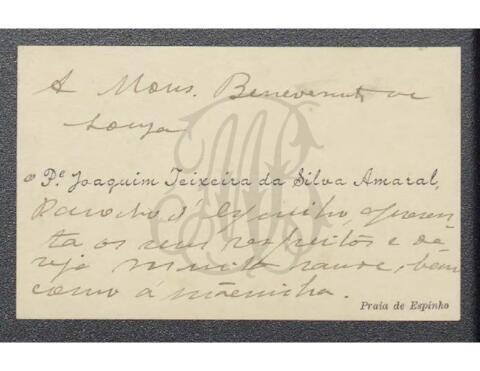 A Mons. Benevenuto de
Souza
o Pe. Joaquim Teixeira da Silva Amaral,
Parocho d'Espinho, apresen-
ta os seus respeitos e de-
seja muita saude, bem
como á mãesinha.
Praia de Espinho